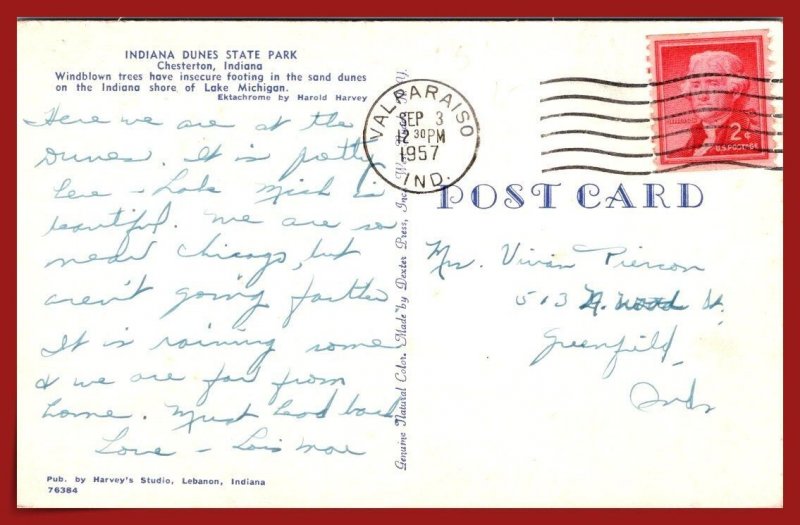 INDIANA DUNES STATE PARK
Chesterton, Indiana
Windblown trees have insecure footing in the sand dunes
on the Indiana shore of Lake Michigan.
Ektachrome by Harold Harvey
Here we are at the
Dunes. It is pretty
here - Lake Mich is
beautiful. We are so
near Chicago, but
aren't going farther
It is raining some
& we are far from
home. Must head back
Love - Lois Mae
Pub. by Harvey's Studio, Lebanon, Indiana
76384
Genuine Natural Color. Made by Dexter Press, Inc.
VALPARAISO
SEP 3
12 30 PM
1957
IND.
2¢
U.S. POSTAGE
POST CARD
Mrs. Vivian Pierson
513 N. Wood St.
Greenfield,
Ind.